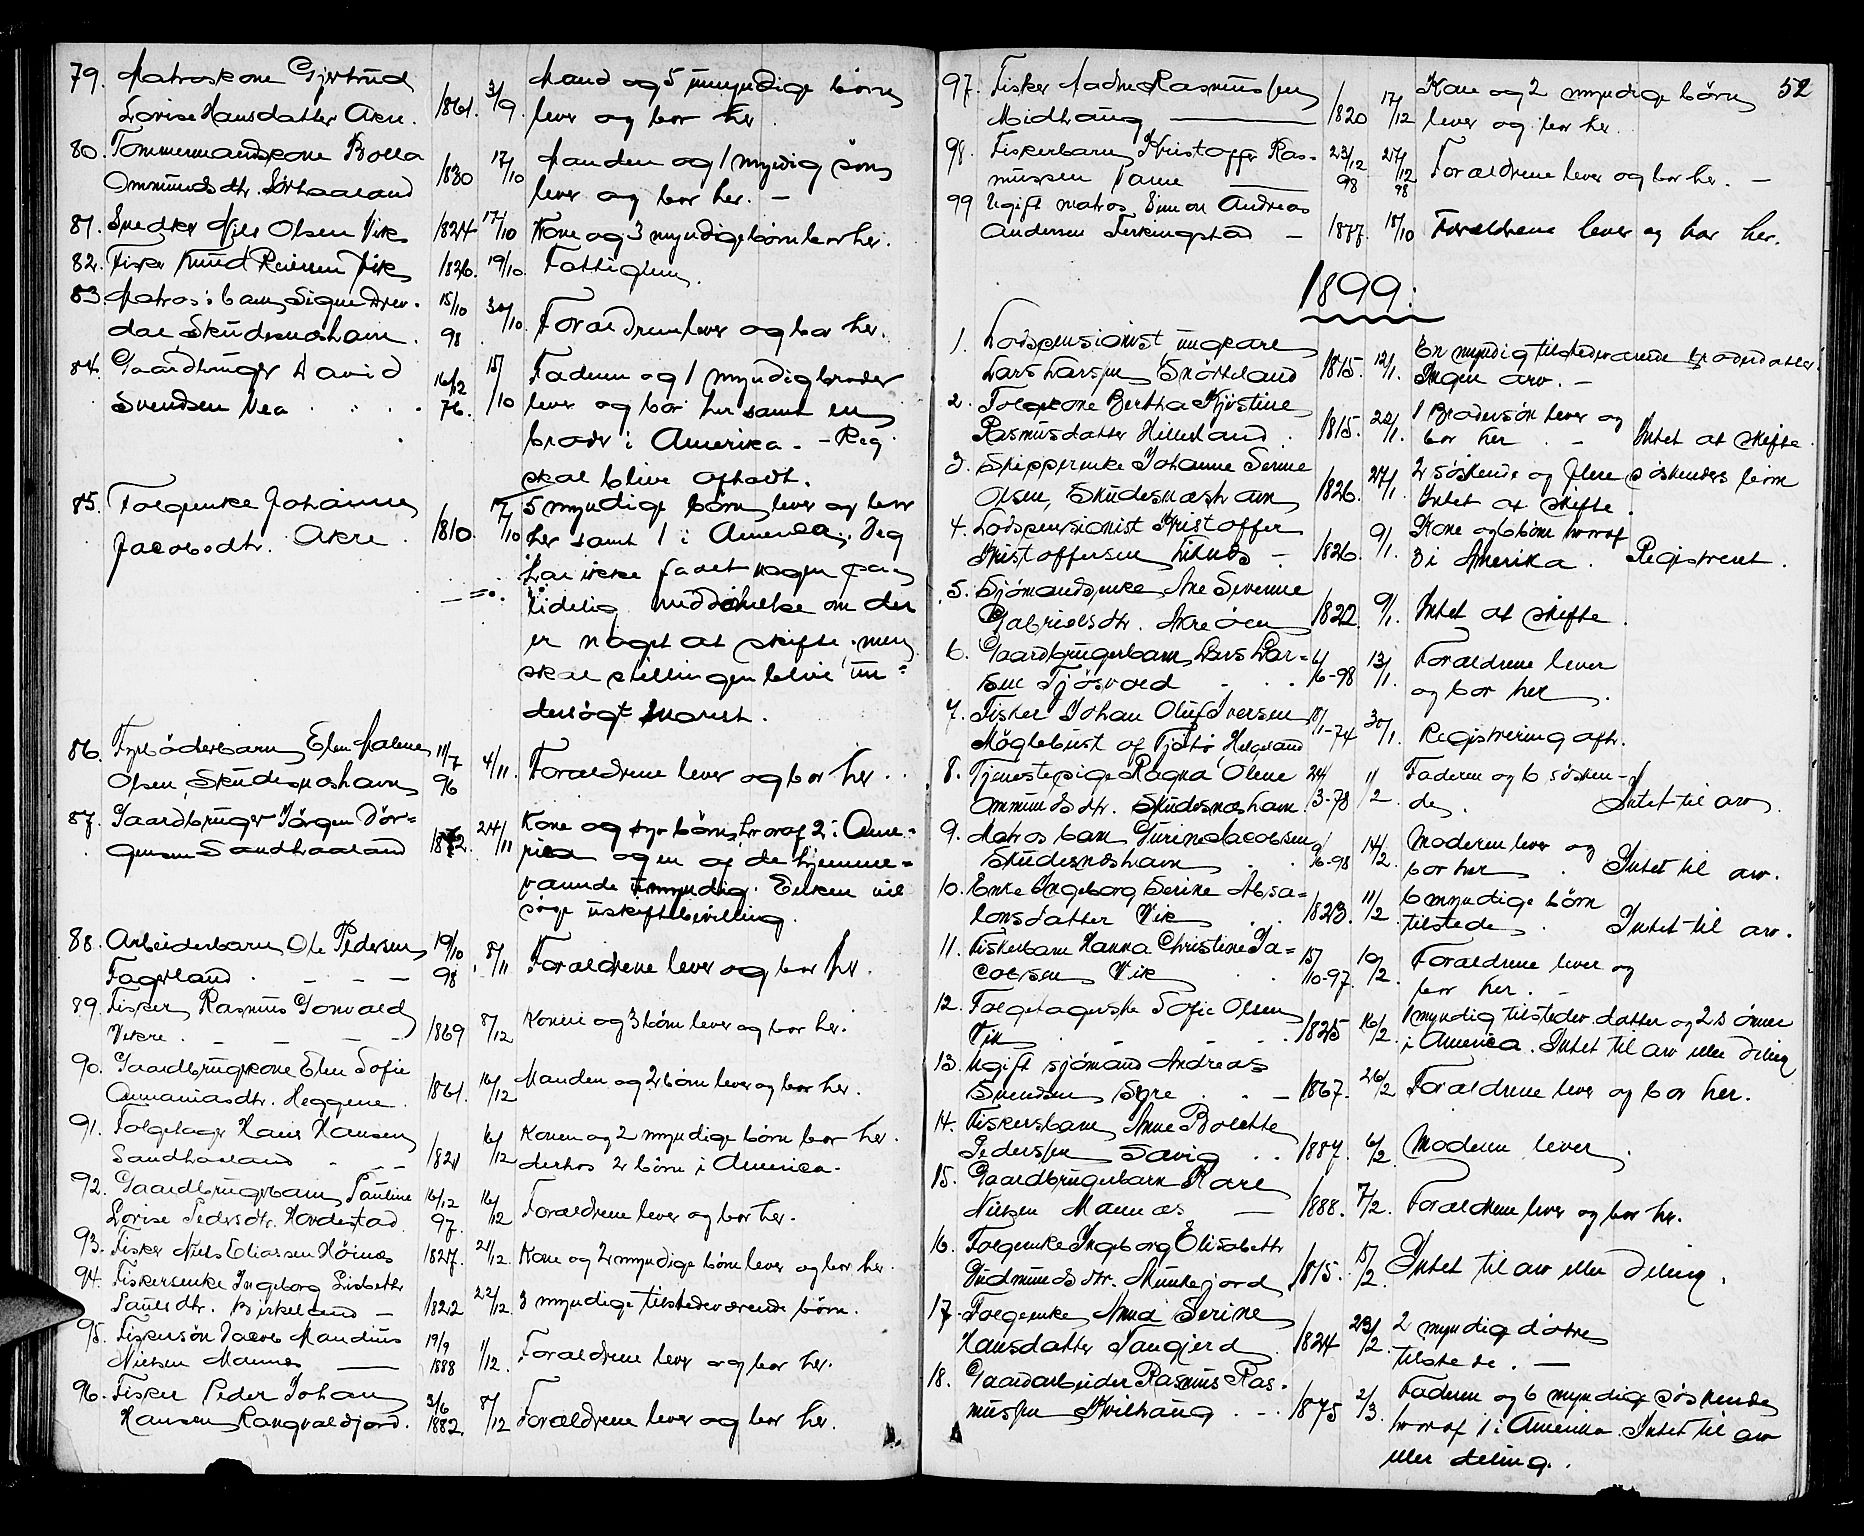 79. Matroskone Gjertrud
Lovise Hansdatter Akre. 1861. 3/9
Mand og 5 umyndige børn
lever og bor her.
80. Tømmermandskone Bolla
Ommunds dtr. Sørhaaland 1830 17/10
Manden og 1 myndig søn
lever og bor her. –
81. Snedker Nils Olsen Vik 1824 17/10 Kone og 3 myndige børn bor her.
82. Fisker Knud Reiersen Vik 1826. 19/10. Fattiglem.
83 Matros: barn Signe
dal Skudesnæshavn. 15/10 98 30/10. Forældrene lever og bor her.
84. Gaardbruger David
Svendsen Vea 16/2 76. 15/10
Faderen og 1 myndig broder
lever og bor her samt en
broder i Amerika. – Reg.
skal blive afholdt.
85. Folgeenke Johanne
Jacobsdtr. Akre 1810. 17/10
5 myndige børn lever og bor
her samt 1 i America. Jeg
har ikke faaet nogen paa-
lidelig meddelelse om der
er noget at skifte, men
skal stillingen blive un-
dersøgt snarest.
86. Fyrbøderbarn Elen Malene
Olsen, Skudesnæshavn 11/7 96 4/11. Forældrene lever og bor her.
87. Gaardbruger Jørgen Jør-
gensen Sandhaaland 24/11
Kone og syv børn, hvoraf 2 i Ame-
rica og en af de hjemme-
værende umyndig. Enken vil
søge uskiftebevilling.
88. Arbeiderbarn Ole Pedersen
Fagerland. 19/10 98. 8/11 Forældrene lever og bor her.
89. Fisker Rasmus Tonvald
Vikre. 1869 8/12 Konen og 3 børn lever og bor her.
90. Gaardbrugerkone Elen Sofie
Ananiasdtr. Heggene. 1861. 16/12 Manden og 2 børn lever og bor her.
91. Folgetager Hans Hansen
Sandhaaland 1821 16/12
Konen og 2 myndige børn bor her.
derhos 2 børn i America.
92. Gaardbrugerbarn Pauline
Lovise Pedersdtr. Hordestad. 16/12 97. 16/12 Forældrene lever og bor her.
93. Fisker Nils Eliassen Høines 1827. 21/12. Kone og 2 myndige børn lever og bor her.
94. Fiskerenke Ingeborg Lisbeth
Paulsdtr. Birkeland – 1822 22/12. 3 myndige tilstedeværende børn.
95. Fiskersøn Jacob Mandius
Nielsen Mannes 19/9 1888 1/12. Forældrene lever og bor her.
96. Fisker Peder Johan
Hansen Langvaldjord. 3/6 1882 8/12 Forældrene lever og bor her.
52
97. Fisker Aadne Rasmussen
Midhaug 1820 17/12
Kone og 2 myndige børn
lever og bor her.
98. Fiskerbarn Kristoffer Ras-
mussen 23/12 98 27/12 98 Forældrene lever og bor her. –
99 Ugift matros Simon Andreas
Andersen Ferkingstad – 1877. 18/10 Forældrene lever og bor her.
1899:
1. Lodspensionist ungkarl
Lars Larsen Snørteland 1815. 12/1.
En myndig tilstedeværende broderdatter.
Ingen arv. –
2. Folgekone Bertha Kjestine
Rasmusdatter Hilleland. 1815. 22/1.
1 Brodersøn lever og
bor her. – Intet at skifte.
3. Skipperenke Johanne Serine
Olsen, Skudesnæshavn 1826. 27/1.
2 søskende og flere søskendes børn
Intet at skifte.
4. Lodspensionist Kristoffer
Kristoffersen – 1826. 9/1.
Kone og 6 børn hvoraf
3 i Amerika. Registreret.
5. Sjømandsenke Ane Severine
Gabrielsdtr. Akreøen 1822. 9/1. Intet at skifte.
6. Gaardbrugerbarn Lars Lar-
sen Tjøsvold 4/6-98 13/1.
Forældrene lever
og bor her.
7. Fisker Johan Oluf Iversen
Møglebust af Tjøtø, Helgeland 18/1-74 30/1. Registrering afh.
8. Tjenestepige Ragna Olene
Ommunds dtr. Skudesnæshavn. 24/3-78 11/2
Faderen og 6 søsken-
de. Intet til arv.
9. Matros barn Gurine Jacobsen
Skudesnæshavn 9/6-98 14/2.
Moderen lever og
bor her. Intet til arv.
10. Enke Ingeborg Serine Absa-
lonsdatter Vik 1823. 11/2.
6 myndige børn
tilstede. Intet til arv.
11. Fiskerbarn Hanna Christine Ja-
cobsen Vik 15/10-97. 10/2.
Forældrene lever og
bor her. –
12. Folgetagerske Sofie Olsen
Vik 1825 16/2.
1 myndig tilstedev. datter og 2 sønner
i America. Intet til arv eller deling
13. Ugift sjømand Andreas
Svendsen Syre – 1867. 26/2 Forældrene lever og bor her.
14. Fiskersbarn Anne Bolette
Pedersen Søvig 1887. 6/2 Moderen lever.
15. Gaardbrugerbarn Karl
Nielsen Mannes – 1888. 7/2. Forældrene lever og bor her.
16. Folgeenke Ingeborg Elisabeth
Gudmunds dtr. Munkejord 1815. 15/2. Intet til arv eller deling.
17. Folgeenke Anna Serine
Hansdatter Tangjerd. 1824 23/2.
2 myndige døtre
tilstede. –
18. Gaardarbeider Rasmus Ras-
mussen Kvilhaug 1875 2/3.
Faderen og 6 myndige søskende
hvoraf 1 i Amerika. Intet til arv
eller deling.